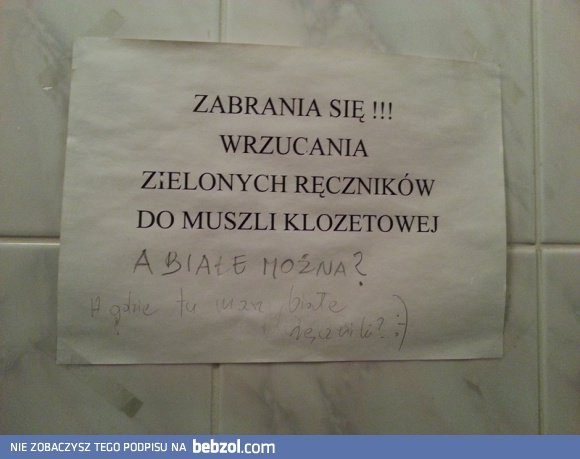 ZABRANIA SIĘ !!!
WRZUCANIA
ZIELONYCH RĘCZNIKÓW
DO MUSZLI KLOZETOWEJ
A BIAŁE MOŻNA?
A gdzie tu masz białe
ręczniki? :)
NIE ZOBACZYSZ TEGO PODPISU NA bebzol.com